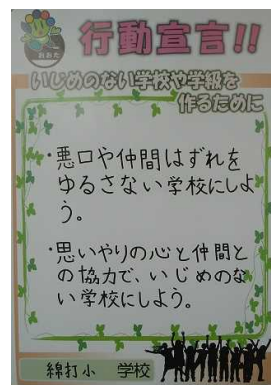 おおた
行動宣言!!
いじめのない学校や学級を
作るために
・悪口や仲間はずれを
ゆるさない学校にしよ
う。
・思いやりの心と仲間と
の協力で、いじめのな
い学校にしよう。
綿打小 学校